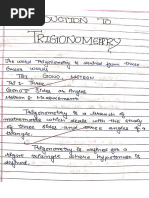 DUCTION TO
TRIGIONOMETRY
The word Trigionometry is derived from three
Greek words
TRI GONO METRON
Tri = Three
Gono = Sides or Angles
Metron = Measurements
Trigionometry is a branch of
mathematics which deals with the study
of three sides and three angles of a
triangle.
Trigionometry is defined for a
Right triangle where hypotenuse is
defined.